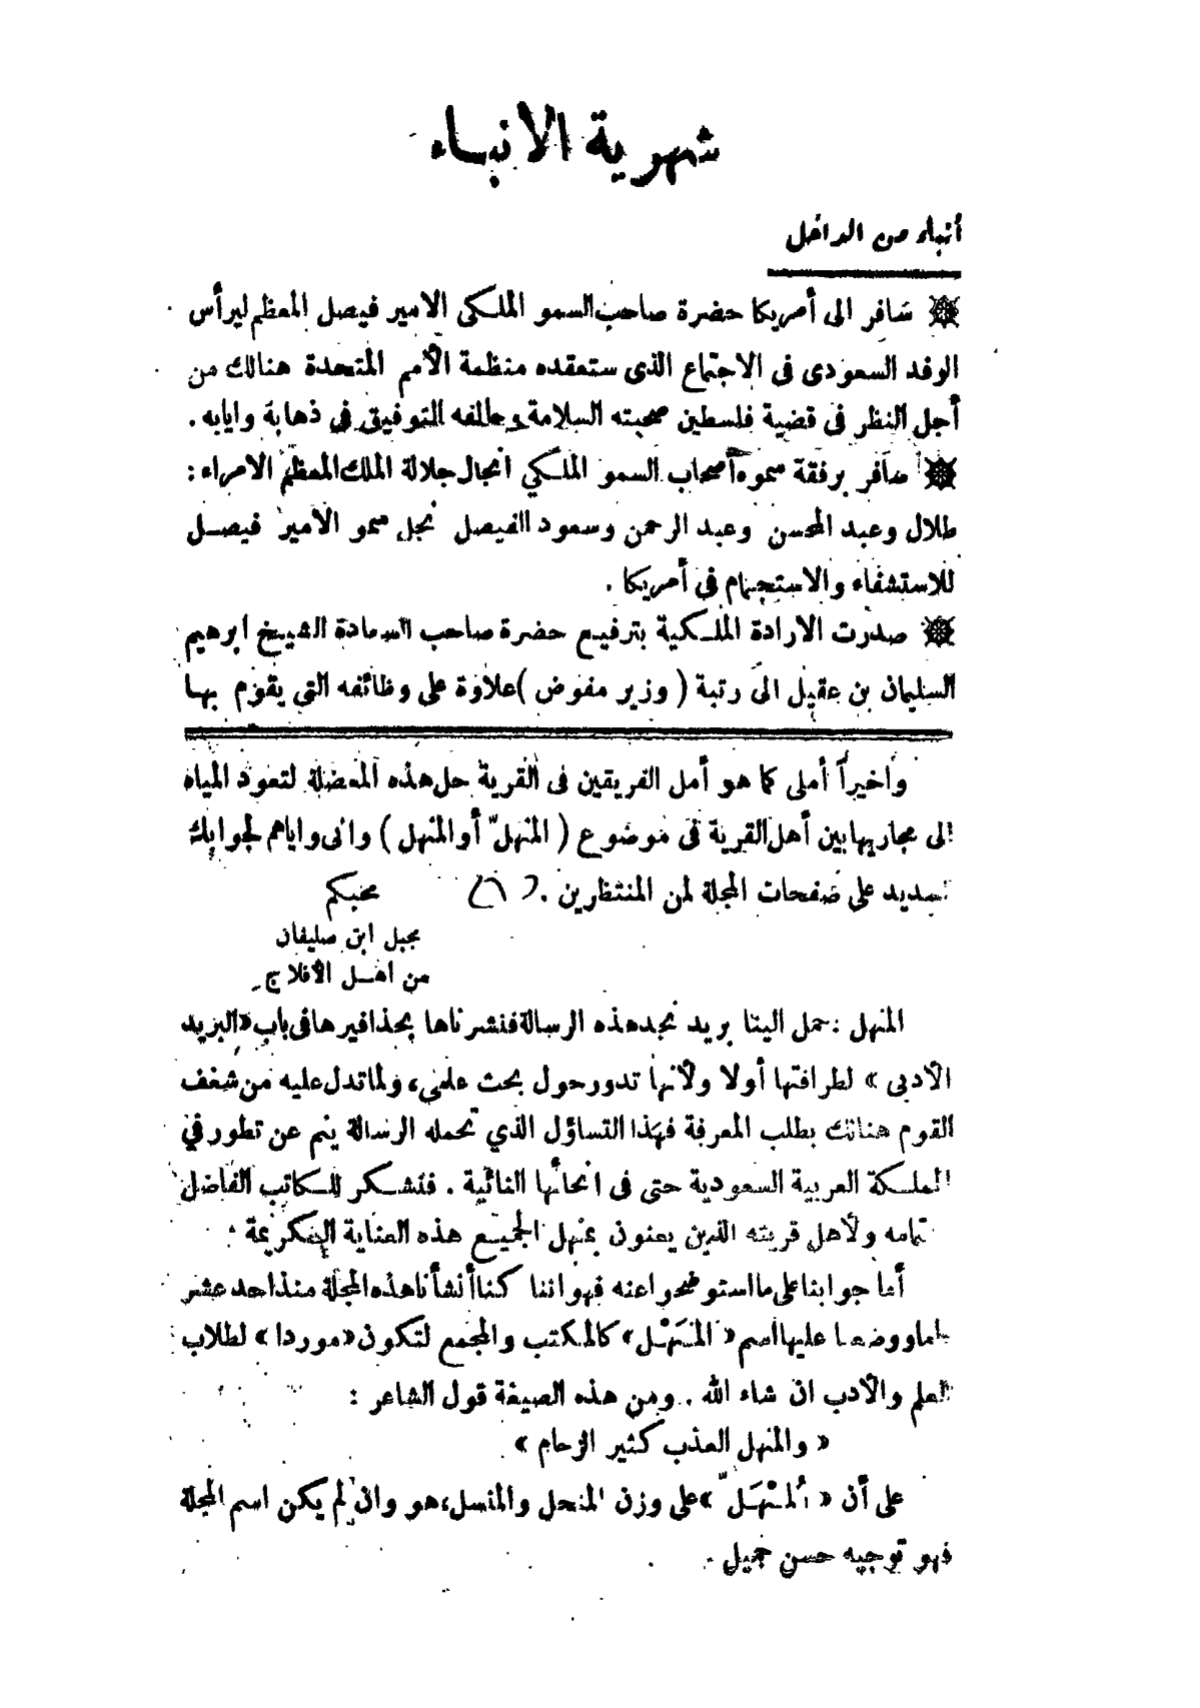 شهرية الانباء
أنباء من الداخل
سافر الى أمريكا حضرة صاحب السمو الملكى الامير فيصل المعظم ليرأس
الوفد السعودى فى الاجتماع الذى ستعقده منظمة الأمم المتحدة هنالك من
أجل النظر فى قضية فلسطين صحبته السلامة وحالفه التوفيق فى ذهابة وايابه .
سافر برفقة سموه أصحاب السمو الملكي انجال جلالة الملك المعظم الامراء :
طلال وعبد المحسن وعبد الرحمن وسعود الفيصل نجل سمو الأمير فيصل
للاستشفاء والاستجمام فى أمريكا .
صدرت الارادة الملكية بترفيع حضرة صاحب السعادة الشيخ ابرهيم
السليمان بن عقيل الى رتبة ( وزير مفوض ) علاوة على وظائفه التي يقوم بها
وأخيراً أملى كما هو أمل الفريقين فى القرية حل هذه المعضلة لتعود المياه
الى مجاريها بين أهل القرية فى موضوع ( المنهلّ أو المنهل ) وانى واياهم لجوابك
السديد على صفحات المجلة لمن المنتظرين . محبكم
مجبل ابن صليفان
من اهل الأفلاج
المنهل : حمل الينا بريد نجد هذه الرسالة فنشرناها بحذافيرها فى باب «البريد
الأدبى » لطرافتها أولا ولأنها تدور حول بحث علمى، ولما تدل عليه من شغف
القوم هنالك بطلب المعرفة فهذا التساؤل الذي تحمله الرسالة ينم عن تطور في
المملكة العربية السعودية حتى فى انحائها النائية . فنشكر للكاتب الفاضل
اهتمامه ولأهل قريته الذين يعنون بمنهل الجميع هذه العناية الكريمة .
أما جوابنا على ما استوضحوا عنه فهو اننا كنا أنشأنا هذه المجلة منذ احد عشر
عاما ووضعنا عليها اسم « المَنْهَل» كالمكتب والمجمع لتكون «موردا » لطلاب
العلم والأدب ان شاء الله . ومن هذه الصيغة قول الشاعر :
« والمنهل العذب كثير الزحام »
على أن « المُنْهَلّ » على وزن المنحل والمنسل، هو وان لم يكن اسم المجلة
فهو توجيه حسن جميل .